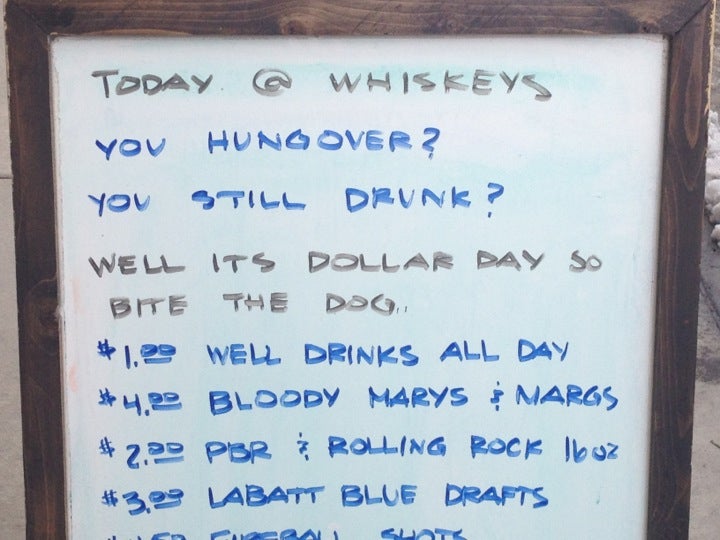 TODAY @ WHISKEYS
YOU HUNGOVER?
YOU STILL DRUNK?
WELL ITS DOLLAR DAY SO
BITE THE DOG..
$1.00 WELL DRINKS ALL DAY
$4.00 BLOODY MARYS & MARGS
$2.00 PBR & ROLLING ROCK 16oz
$3.00 LABATT BLUE DRAFTS
FIREBALL SHOTS